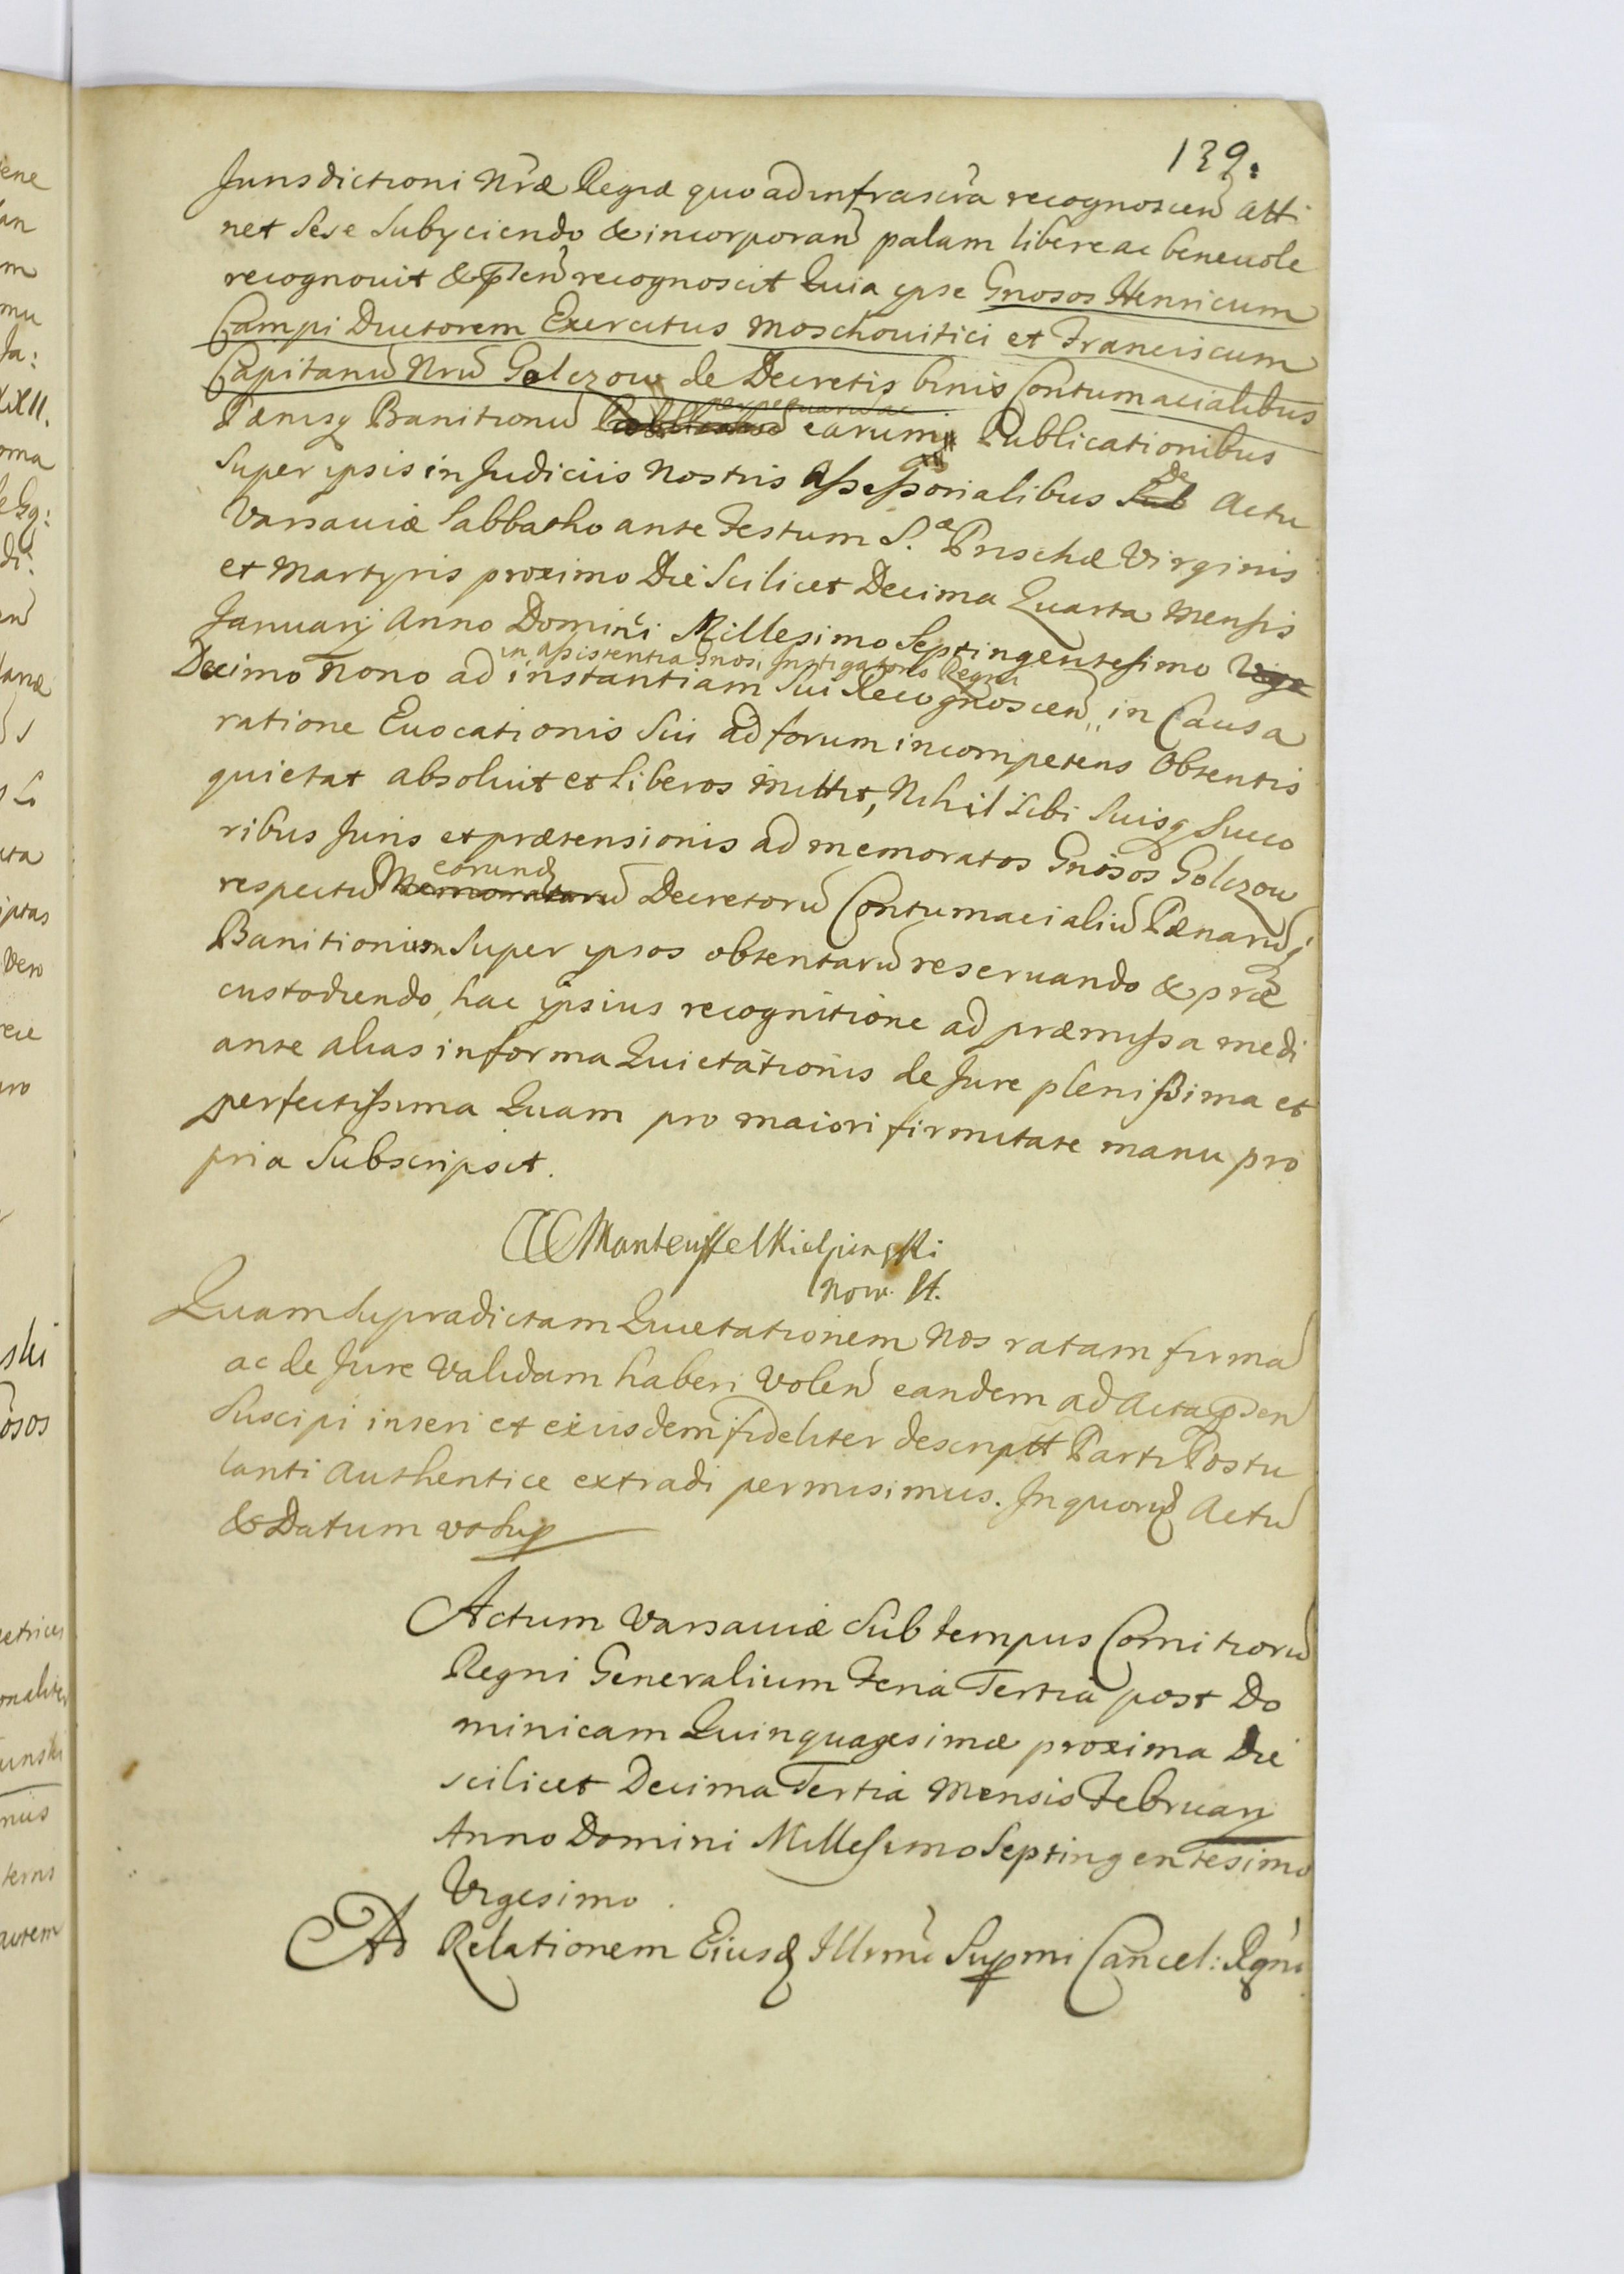 139.
Jurisdictioni Nr̃æ Regiæ quo ad infrascr̃a recognoscen̄ atti
net sese subyciendo & incorporan̄ palam libere ac beneuole
recognouit & p̃ten̄ recognoscit Quia ipse Gnosos Henricum
Campi Ductorem Exercitus Moschouitici et Franciscum
Capitanū Nrū Golczow de Decretis binis Contumacialibus
perpetuarū ac
Pænisq Banitionū earum Publicationibus
De
super ipsis in Judiciis Nostris Assessorialibus Sub Actu
Varsauiæ Sabbatho ante Festum S.æ Prischæ Virginis
et Martyris proximo Die Scilicet Decima Quarta Mensis
Januarij Anno Domini Millesimo Septingentesimo Vige
in assistentia Gnosi Instigatoris Regni
Decimo Nono ad instantiam Sui Recognoscen̄ in Causa
ratione Euocationis Sui ad forum incompetens Obtentis
quietat absoluit et liberos mittit, Nihil sibi Suisq Succo
ribus Juris et prætensionis ad memoratos Gnosos Golczow
eorund
respectū Memoratorū Decretorū Contumacialiū Pænarūq
Banitionum super ipsos obtentarū reseruando & præ
custodiendo, hac ipsius recognitione ad præmissa medi
ante alias in forma Quietationis de Jure plenissima et
perfectissima Quam pro maiori firmitate manu pro
pria Subscripsit.
Manteuffel Kielpinski
Now. St.
Quam supradictam Quietationem Nos ratam firmā
ac de Jure Validam haberi Volen̄ eandem ad Acta p̃sen
Suscipi inseri et eiusdem fideliter descriptt Parti Postu
lanti Authentice extradi permisimus. In quorū Actū
& Datum vt Sup
Actum Varsauiæ Sub tempus Comitiorū
Regni Generalium Feria Tertia post Do
minicam Quinquagesimæ proxima Die
scilicet Decima Tertia Mensis Februarij
Anno Domini Millesimo Septingentesimo
Vigesimo.
Ad Relationem Eiusd Illrmi Supmi Cancel: Rgni